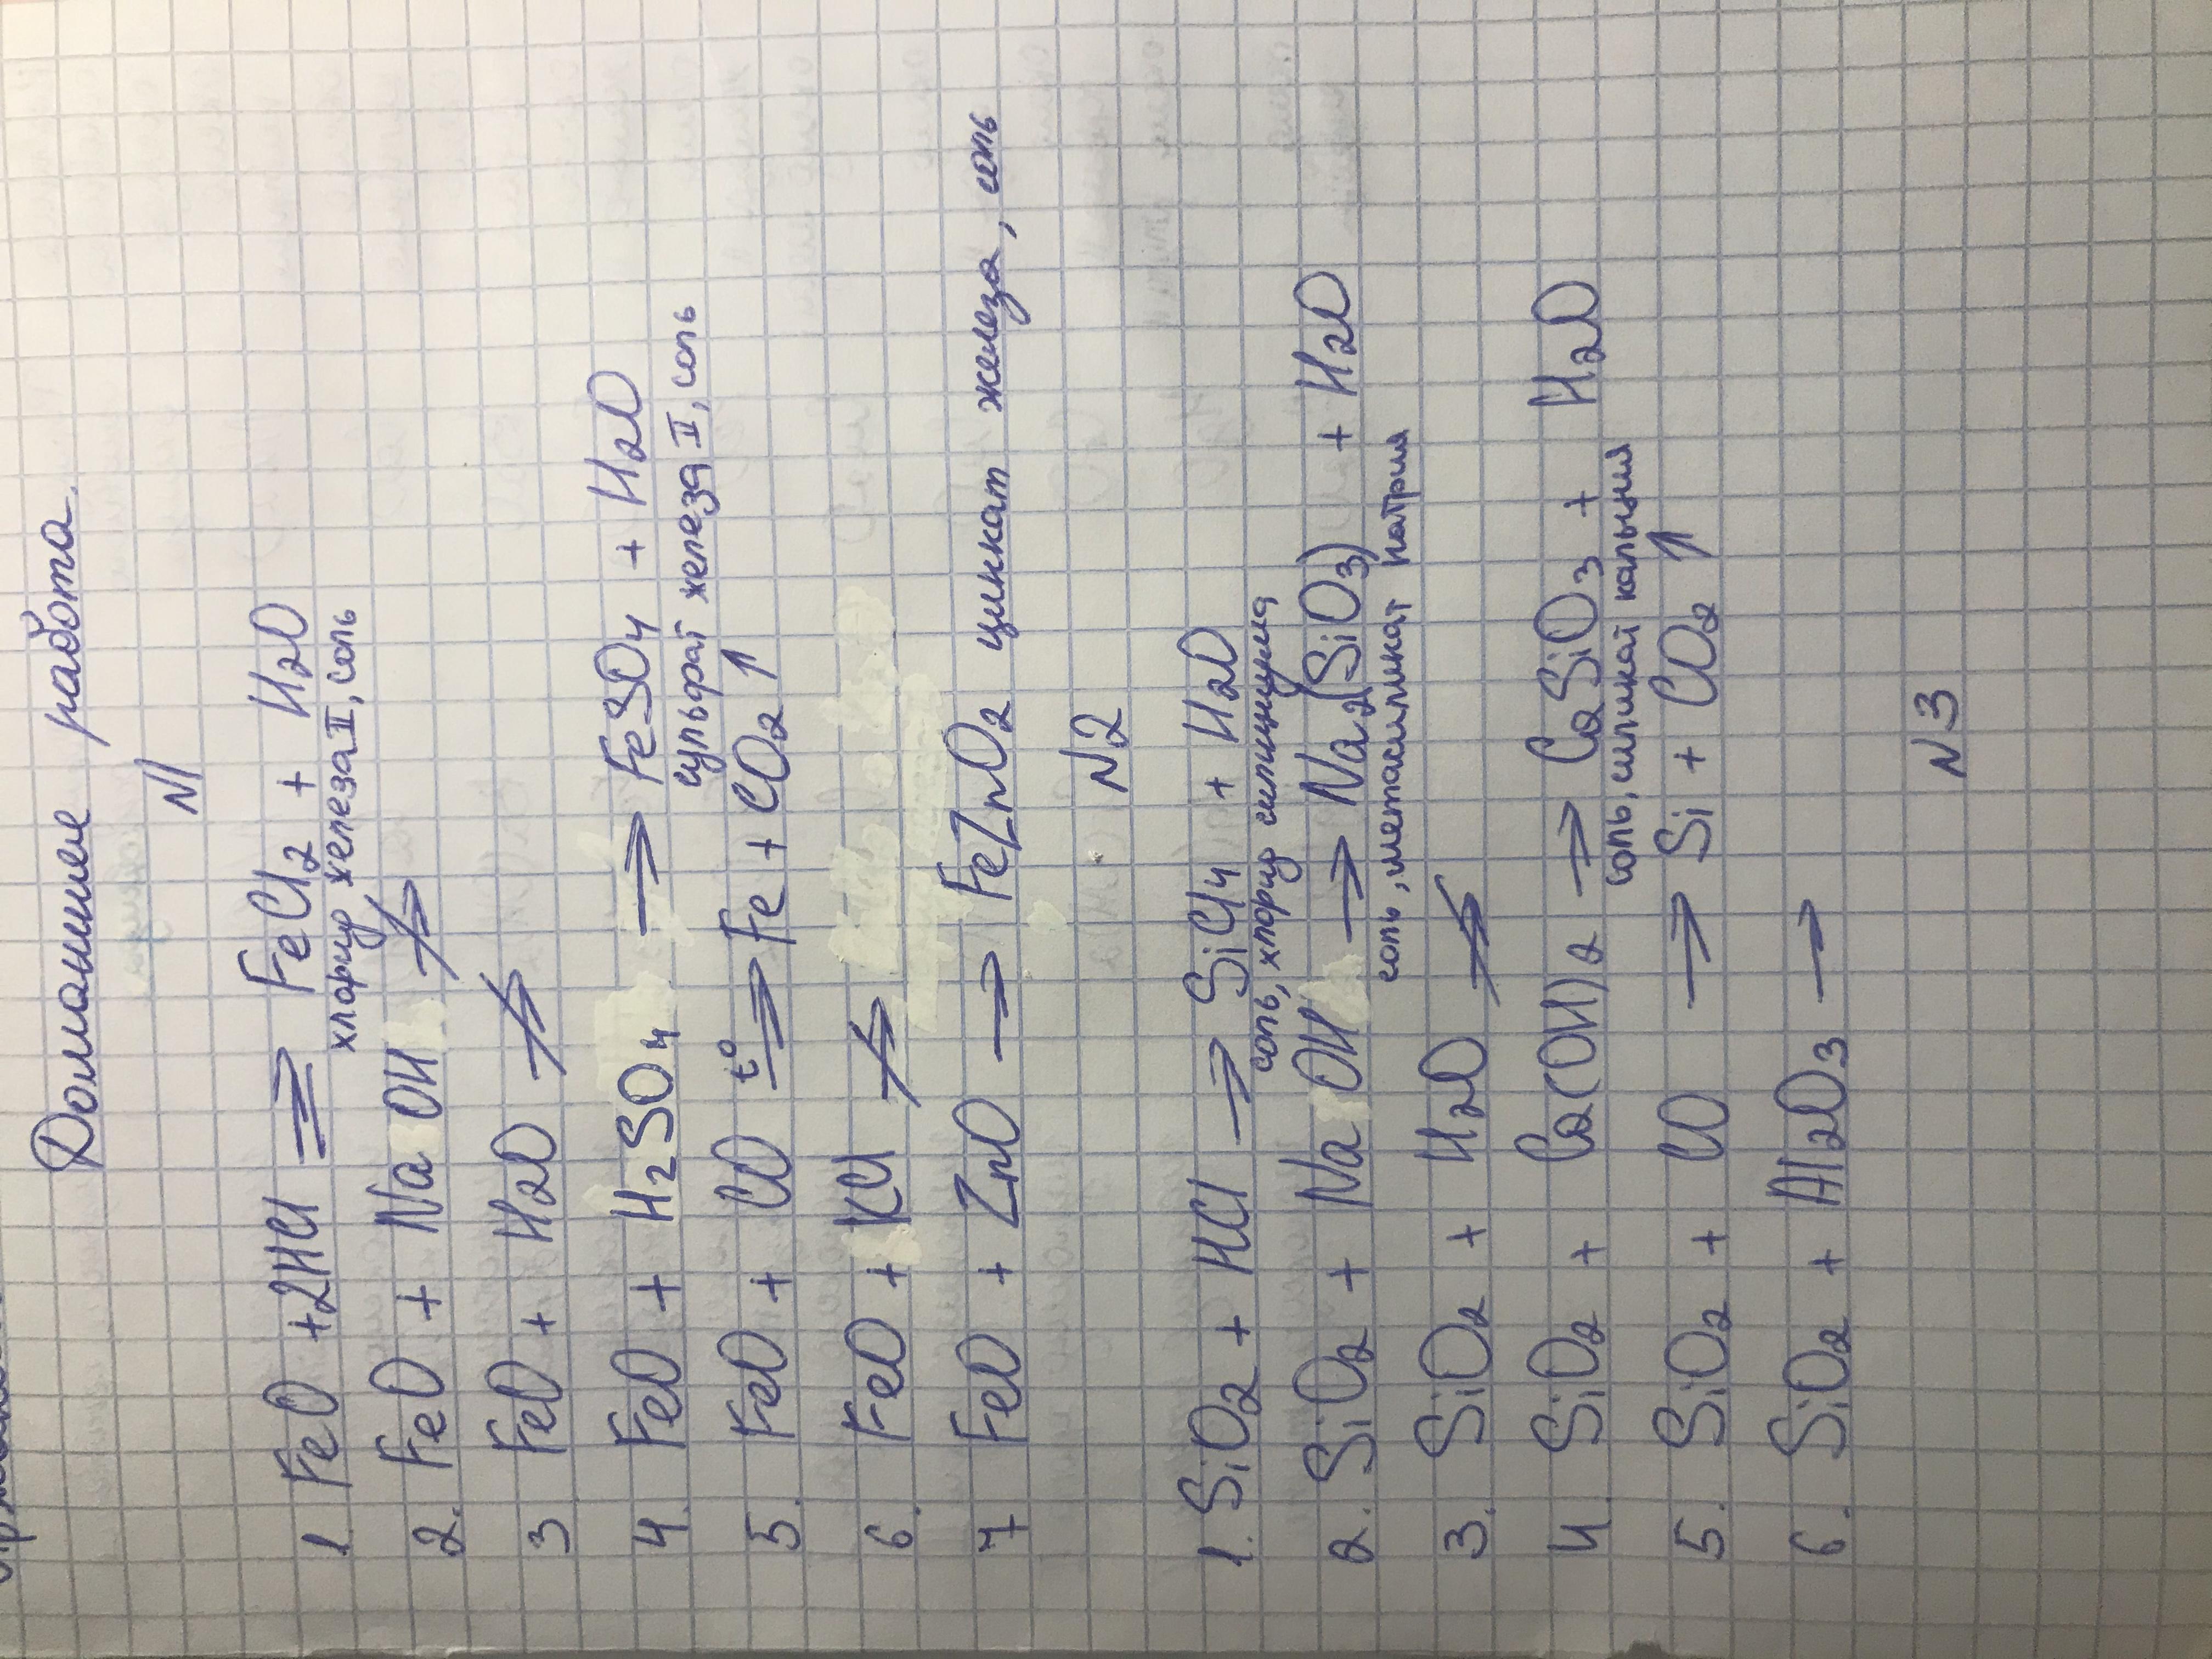 Домашнее работа.
N1
1. FeO + 2HCl ⇒ FeCl2 + H2O
хлорид железа II, соль
2. FeO + NaOH ⇏
3 FeO + H2O ⇏
4. FeO + H2SO4 → FeSO4 + H2O
сульфат железа II, соль
5. FeO + CO t° ⇒ Fe + CO2 ↑
6. FeO + KCl ⇏
7 FeO + ZnO → FeZnO2 цинкат железа, соль
N2
1. SiO2 + HCl → SiCl4 + H2O
соль, хлорид силициума
2. SiO2 + NaOH → Na2(SiO3) + H2O
соль, метасиликат натрия
3. SiO2 + H2O ⇏
4. SiO2 + Ca(OH)2 → CaSiO3 + H2O
соль, силикат кальция
5. SiO2 + CO → Si + CO2 ↑
6. SiO2 + Al2O3 →
N3